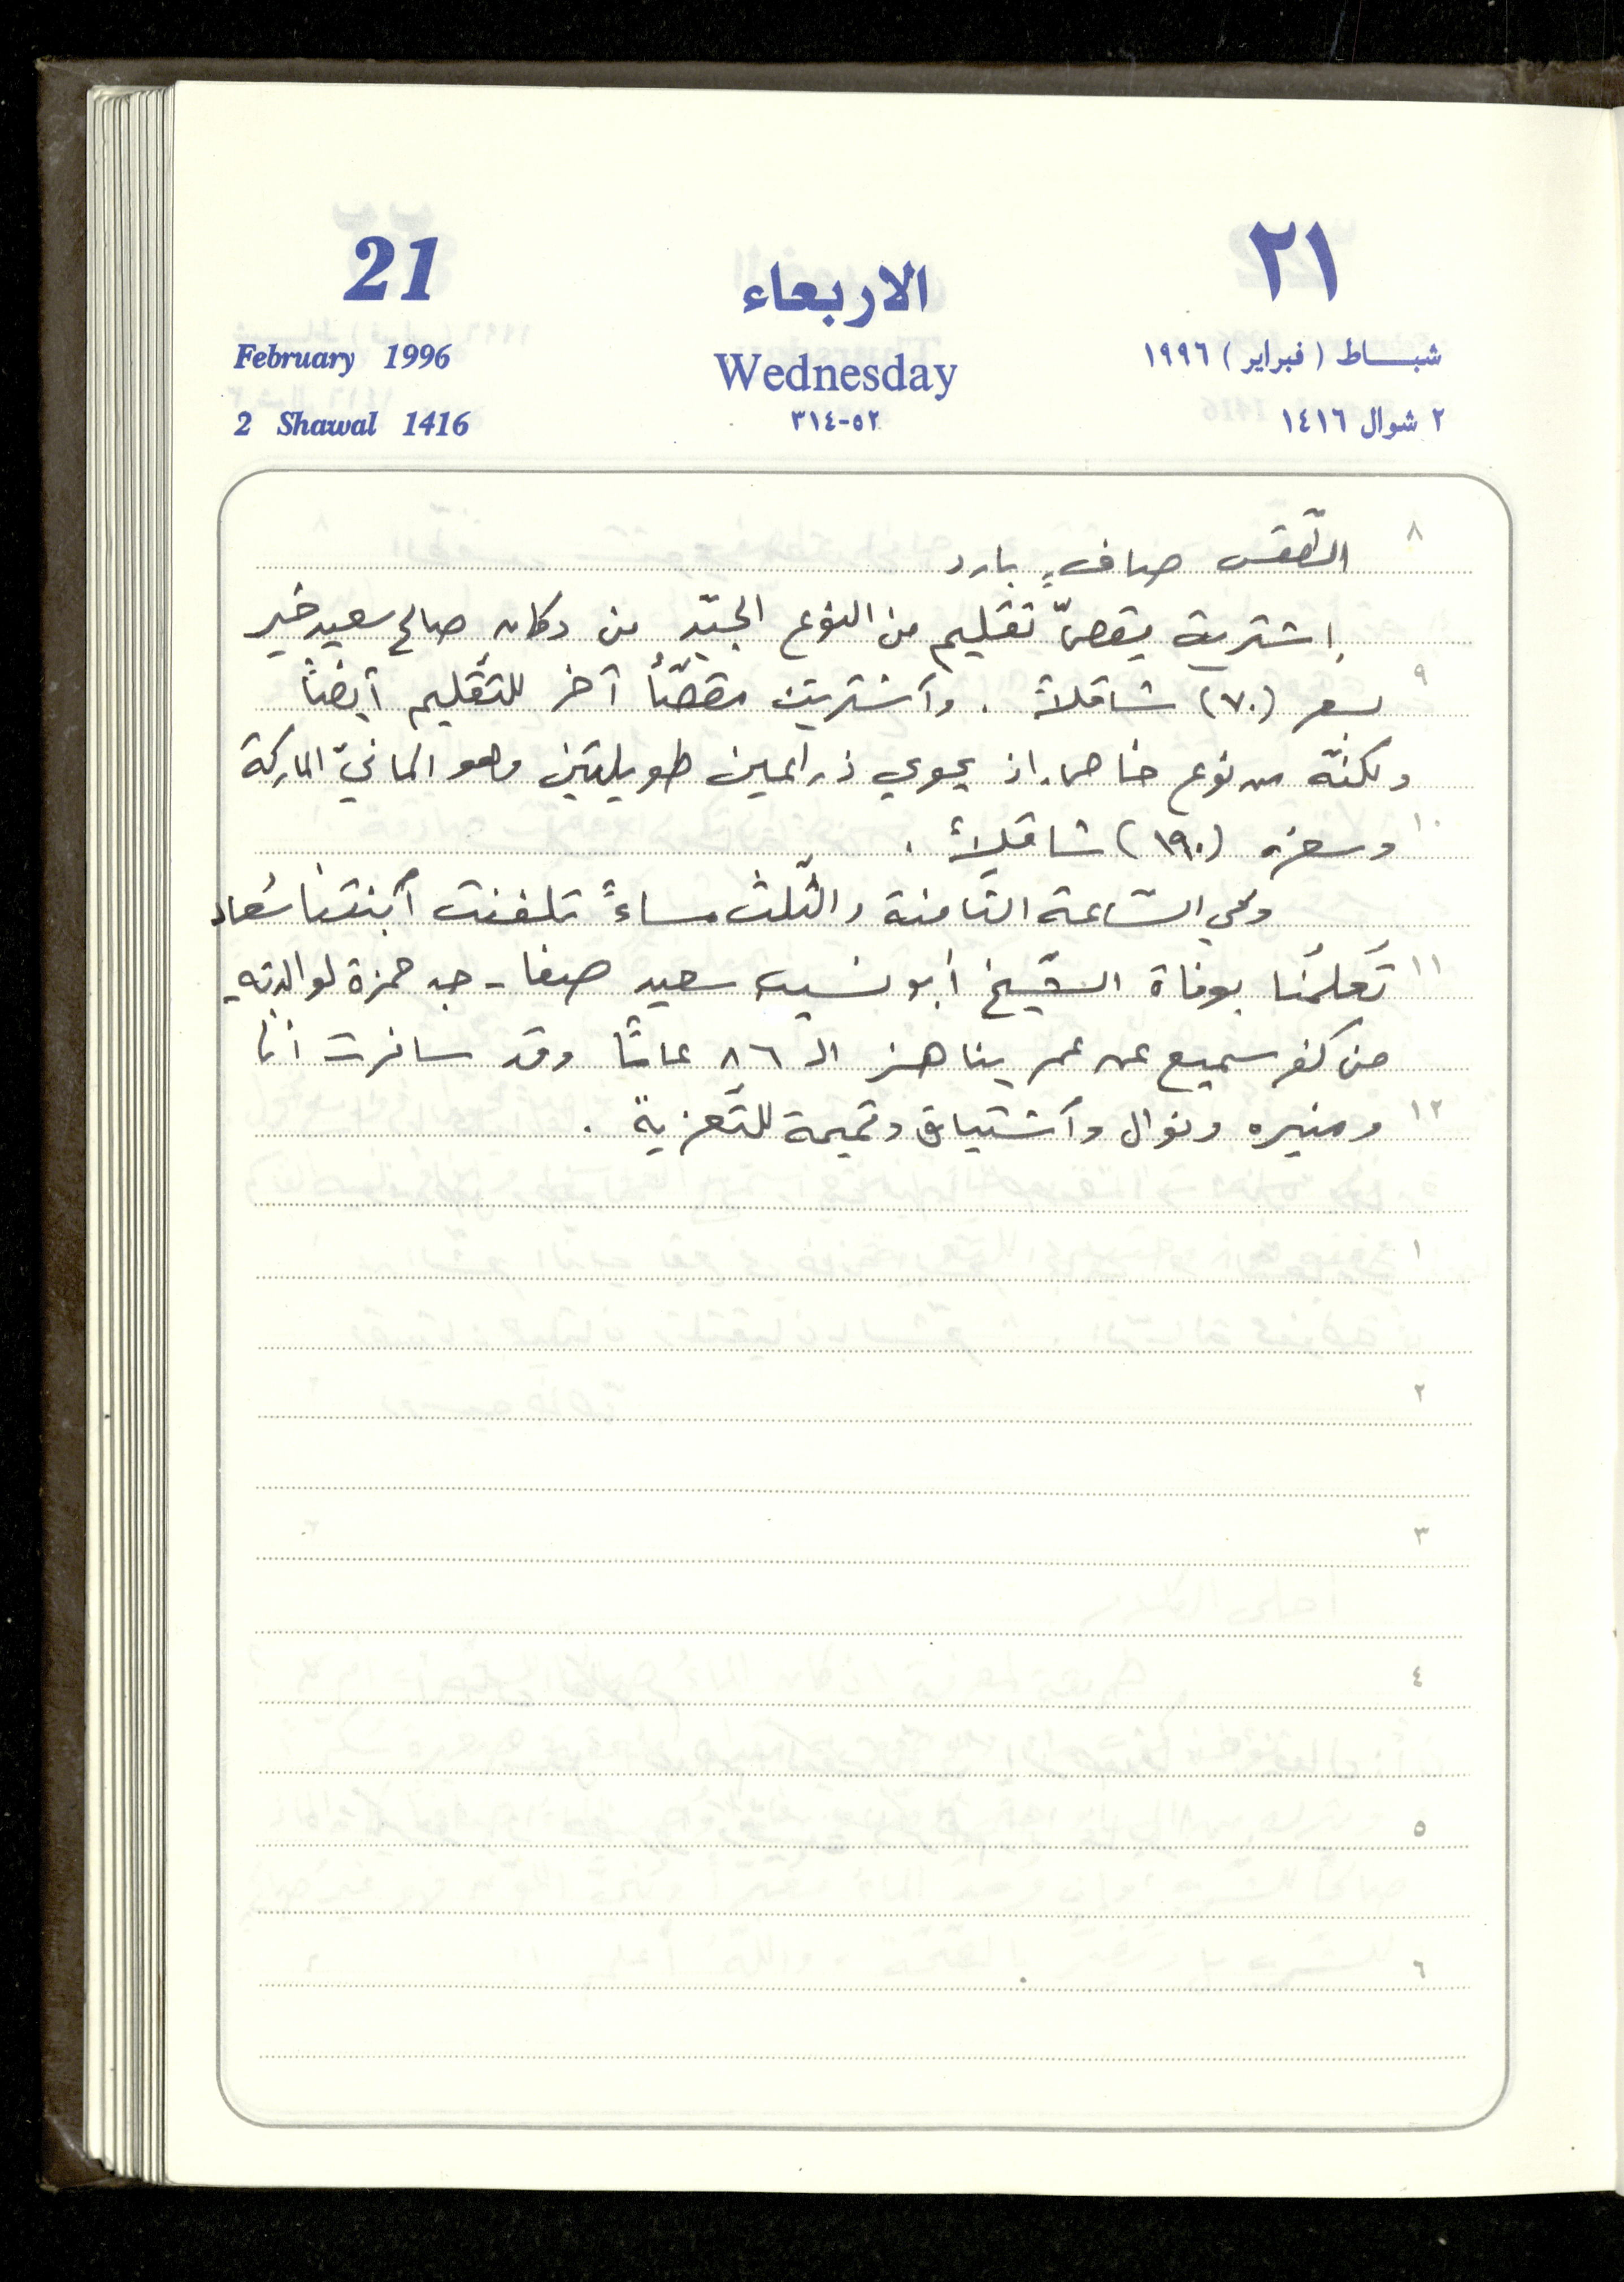 21 الاربعاء ٢١
February 1996 Wednesday شباط (فبراير) ١٩٩٦
2 Shawal 1416 ٥٢-٣١٤ ٢ شوال ١٤١٦
٨
الطّقس صافٍ بارد
إشتريت مقصّ تقليم من النوع الجيّد من دكان صالح سعيد خير
٩
بسعر (٧٠) شاقلاً . وآشتريت مقصّاً آخر للتّقليم أيضاً
ولكنّه من نوع خاص. اذ يحوي ذراعين طويلتين وهو المانيّ الماركة
١٠
وسعره (١٩٠) شاقلاً .
وفي السّاعة الثّامنة والثّلث مساءً تلفنت آبنتنا سُعاد
١١
تَعلمُنا بوفاة الشّيخ أبو نسيب سعيد صفا - جد حمزة لوالدته
من كفر سميع عن عمر يناهز الـ ٨٦ عاماً وقد سافرت أنا
١٢
ومنيره ونوال وآشتياق وتميمة للتّعزية .
١
٢
٣
٤
٥
٦